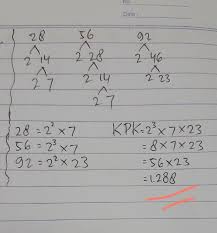 No.
Date
28 56 92
2 14 2 28 2 46
2 7 2 14 2 23
2 7
28 = 2² × 7
56 = 2³ × 7
92 = 2² × 23
KPK = 2³ × 7 × 23
= 8 × 7 × 23
= 56 × 23
= 1.288